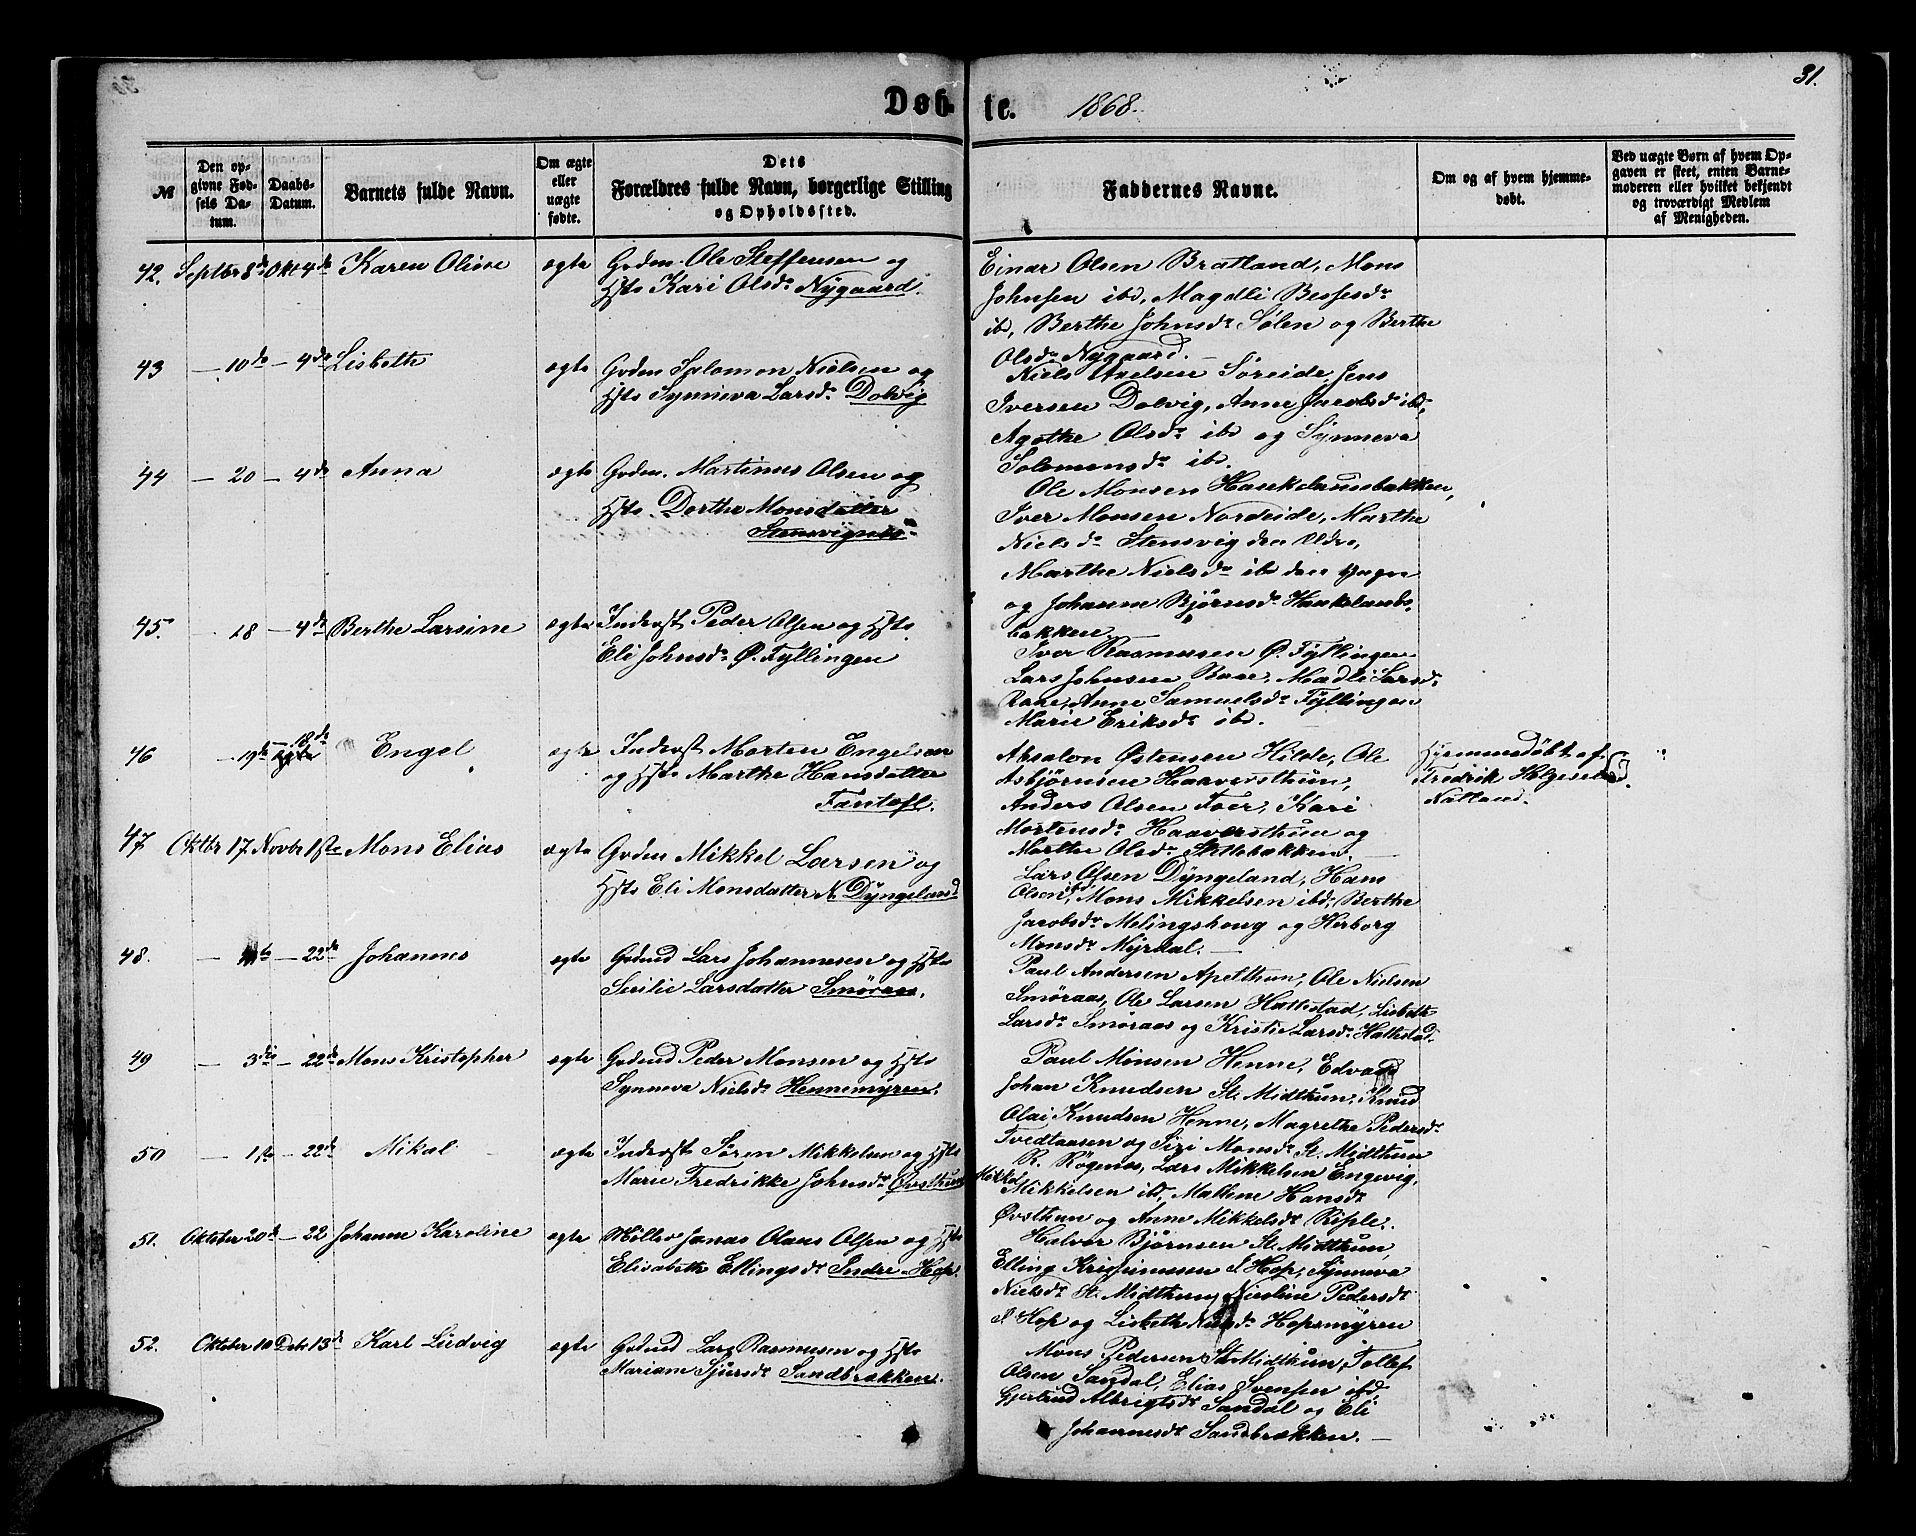 31.
Døbte. 1868.
№
Den op-
givne Fød-
sels Da-
tum.
Daabs-
Datum.
Barnets fulde Navn.
Om ægte
eller
uægte
fødte.
Dets
Forældres fulde Navn, borgerlige Stilling
og Opholdssted.
Faddernes Navne.
Om og af hvem hjemme-
døbt.
Ved uægte Børn af hvem Op-
gaven er skeet, enten Barne-
moderen eller hvilket bekjendt
og troværdigt Medlem
af Menigheden.
42. Septbr 8de Okt 4de Karen Olive ægte Grdm. Ole Steffensen og
Hst. Kari Olsdr Nygaard.
Einar Olsen Bratland, Mons
Johnsen ibd, Magdli Bessesdr
ibd, Berthe Johnsdr Sølen og Berthe
Olsdr Nygaard.
43 — 10de — 4de Lisbeth ægte Grdm Salomon Nielsen og
Hst. Synneva Larsdr Dolvig
Niels Axelsen Søreide, Jens
Iversen Dolvig, Anne Jacobsd ibd,
Agothe Olsdr ibd og Synneva
Salomonsdr ibd.
44 — 20 — 4de Anna ægte Grdm. Martinus Olsen og
Hst. Dorthe Monsdatter
Stensvignes
Ole Monsen Haukelandsbakken,
Iver Monsen Nordeide, Marthe
Nielsdr Stensvig den Eldre,
Marthe Nielsdr ibd den yngre
og Johanne Bjørnsdr Haukelands-
bakken.
45. 18 — 4de Berthe Larsine ægte Inderst Peder Olsen og Hst.
Eli Johnsdr Ø. Fyllingen
Iver Rasmusen Ø. Fyllingen
Lars Johnsen Raae, Madli Larsdr
Raae, Anne Samuelsdr Fyllingen
Marie Eriksdr ibd.
46 — 19de 18de Engel ægte Inderst Morten Engelsen
og Hst. Marthe Hansdatter
Fantoft.
Absalon Østensen Hilde, Ole
Asbjørnsen Haaversthun,
Anders Olsen Tver, Kari
Mortensdr Haaversthun og
Marthe Olsdr Slettebakken.
Hjemmedøbt af
Fredrik Helgesen
Natland.
47 Oktbr 17 Novbr 1ste Mons Elias ægte Grdm Mikkel Larsen og
Hst. Eli Monsdatter N. Dyngeland
Lars Olsen Dyngeland, Hans
Olsen ibd, Mons Mikkelsen ibd, Berthe
Jacobsdr Melingshoug og Herborg
Monsdr Myrdal.
48. — — 22de Johannes ægte Grdmd Lars Johannesen og Hst.
Sirilie Larsdatter Smøraas.
Paul Andersen Apelthun, Ole Nielsen
Smøraas, Ole Larsen Hattestad, Lisbeth
Larsdr Smøraas og Kristie Larsdr Hattestad.
49 — 3die — 22de Mons Kristopher ægte Grdmd Peder Monsen og Hst.
Synneva Nielsdr Hennemyren.
Paul Monsen Henne, Edvard
Johan Knudsen St. Midthun, Knud
Olai Knudsen Henne, Magrethe Pedersdr
Tvedtaasen og Sizi Monsdr St. Midthun
50 — 1ste — 22de Mikal ægte Inderst Søren Mikkelsen og Hst.
Marie Fredrikke Johnsdr Øvsthun
R. Røgenes, Lars Mikkelsen Engevig,
Mikkel
Mikkelsen ibd, Mallene Hansdr
Øvsthun og Anne Mikkelsdr Riple.
51. Oktober 20de — 22 Johanne Karoline ægte Møller Jonas Olaus Olsen og Hst.
Elisabeth Ellingsdr Indre-Hop.
Halvor Bjørnsen St. Midthun,
Elling Kristensen I. Hop, Synneva
Nielsdr St. Midthun, Nicoline Pedersdr
I. Hop og Lisbeth Nielsdr Hopsmyren
52. Oktober 10 Debr 13de Karl Ludvig ægte Grdmd Lars Rasmusen og Hst.
Mariam Sjursdr Sandbrekken.
Mons Pedersen St. Midthun, Tollef
Olsen Sandal, Elias Svensen ibd,
Gjertrud Albrigtsdr Sandal og Eli
Johannesdr Sandbrekken.